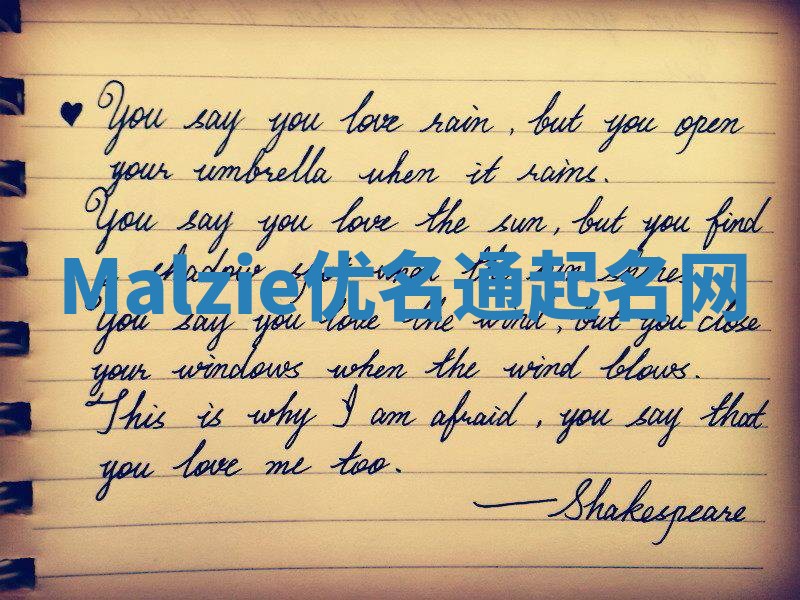 ♥ You say you love rain, but you open
your umbrella when it rains.
You say you love the sun, but you find
a shadow spot when the sun shines.
Malzie优名通起名网
You say you love the wind, but you close
your windows when the wind blows.
This is why I am afraid, you say that
you love me too.
— Shakespeare